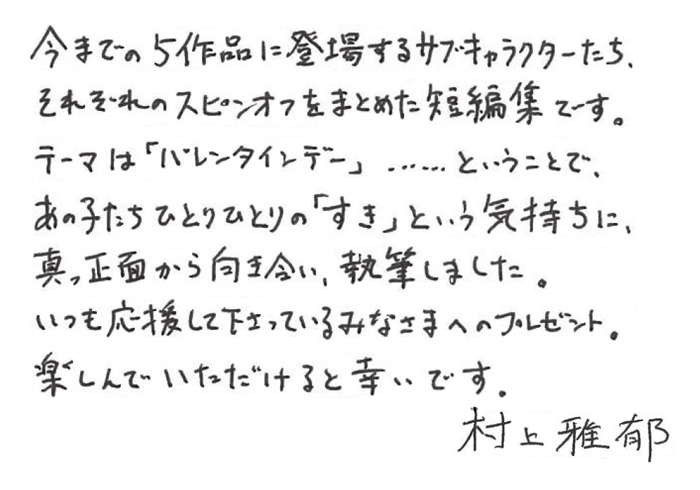 今までの5作品に登場するサブキャラクターたち、
それぞれのスピンオフをまとめた短編集です。
テーマは「バレンタインデー」……ということで、
あの子たちひとりひとりの「すき」という気持ちに、
真っ正面から向き合い、執筆しました。
いつも応援して下さっているみなさまへのプレゼント。
楽しんでいただけると幸いです。
村上雅郁